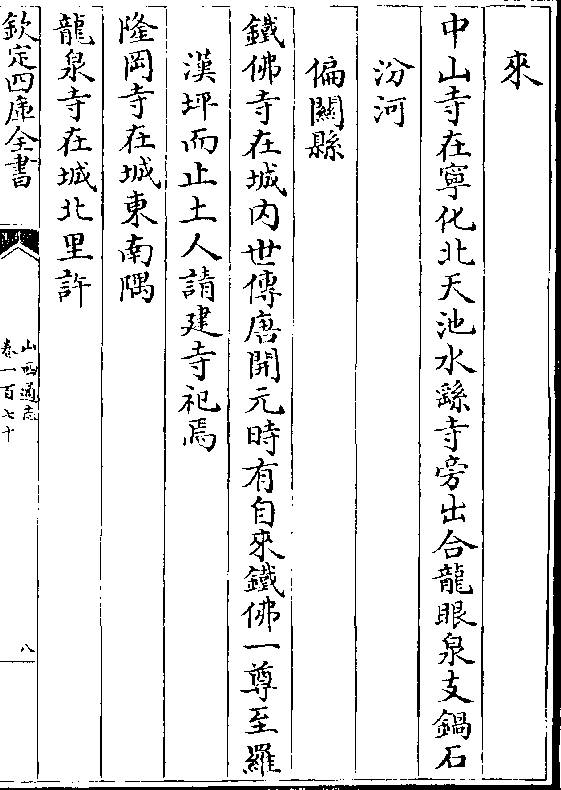 來
中山寺在寧化北天池水繇寺旁出合龍眼泉支鍋石
汾河
偏關縣
鐵佛寺在城內世傳唐開元時有自來鐵佛一尊至羅
漢坪而止土人請建寺祀焉
隆岡寺在城東南隅
龍泉寺在城北里許
欽定四庫全書
山西通志
卷一百七十
八